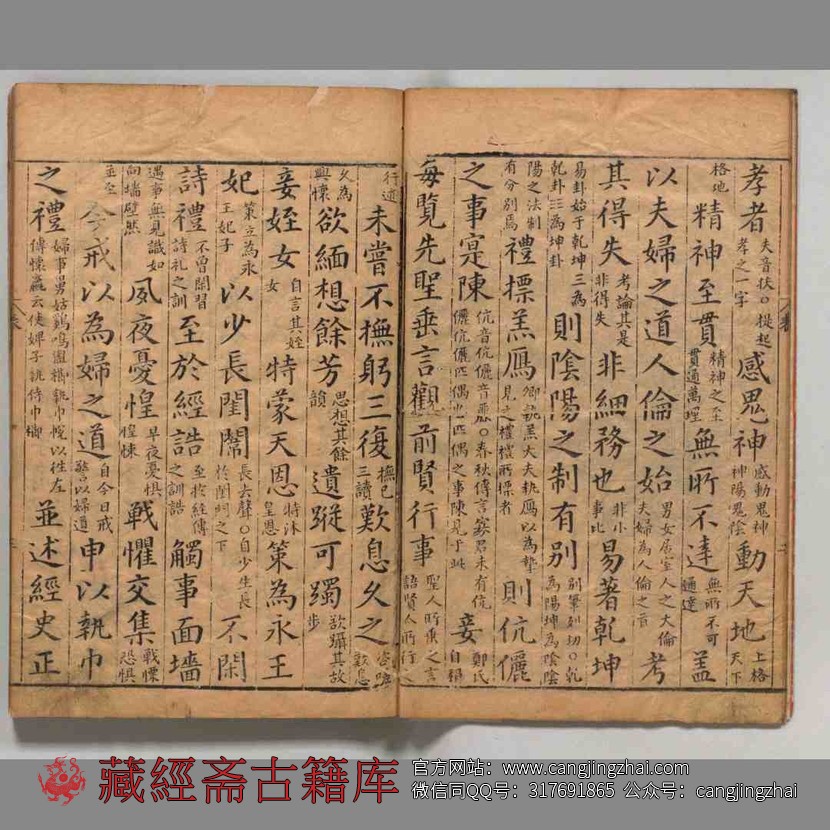 孝者夫音扶○提起孝之一字感鬼神感動鬼神神陽鬼陰動天地上格天下
格地精神至貫精神之至貫通萬理無所不達無所不可通達蓋
以夫婦之道人倫之始男女居室人之大倫夫婦為人倫之首考
其得失考論其是非得失非細務也非小事比易著乾坤
易卦始于乾坤三為乾卦三為坤卦則陰陽之制有別別筆列切○乾為陽坤為陰陰
陽之法制有分別焉禮標羔鴈卿執羔大夫執鴈以為摯見之禮標所標者則伉儷
之事寔陳伉音伉儷音麗○春秋傳言寡君未有伉儷伉儷匹偶也匹偶之事陳見于此妾鄭氏自稱
每覽先聖垂言觀前賢行事聖人所垂之言語賢人所行之
行述未嘗不撫躬三復撫己三讀歎息久之歎息
久為興懷欲緬想餘芳思想其餘韻遺蹤可躅欲躡其故步
妾姪女自言其姪女特蒙天恩特沐皇恩策為永王
妃策立為永王妃子以少長閨闈長去聲○自少生長於閨之下不閑
詩禮不曾閑習詩礼之訓至於經誥至於經傳之訓誥觸事面墻
遇事無見識如向墻壁然夙夜憂惶早夜憂惧惶悚戰懼交集戰慄恐惧
並至今戒以為婦之道自今日戒警以婦道申以執巾
之禮婦事舅姑鷄鳴盥櫛執巾帨以往左傳懷嬴云使婢子執侍巾櫛並述經史正
藏經斋古籍库
官方网站：www.cangjingzhai.com
微信同QQ号：317691865 公众号：cangjingzhai